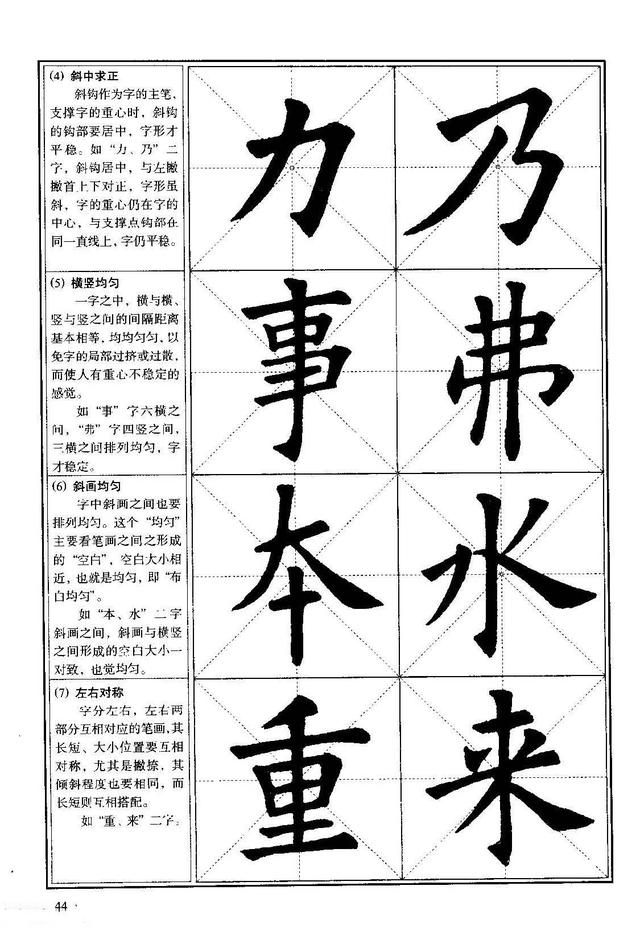 (4) 斜中求正
斜钩作为字的主笔，
支撑字的重心时，斜钩
的钩部要居中，字形才
平稳。如“力、乃”二
字，斜钩居中，与左撇
撇首上下对正，字形虽
斜，字的重心仍在字的
中心，与支撑点钩部在
同一直线上，字仍平稳。
力 乃
(5) 横竖均匀
一字之中，横与横、
竖与竖之间的间隔距离
基本相等，均均匀匀，以
免字的局部过挤或过散，
而使人有重心不稳定的
感觉。
如“事”字六横之
间，“弗”字四竖之间，
三横之间排列均匀，字
才稳定。
事 弗
(6) 斜画均匀
字中斜画之间也要
排列均匀。这个“均匀”
主要看笔画之间之形成
的“空白”，空白大小相
近，也就是均匀，即“布
白均匀”。
如“本、水”二字
斜画之间，斜画与横竖
之间形成的空白大小一
对致，也觉均匀。
本 水
(7) 左右对称
字分左右，左右两
部分互相对应的笔画，其
长短、大小位置要互相
对称，尤其是撇捺，其
倾斜程度也要相同，而
长短则互相搭配。
如“重、来”二字。
重 来
44